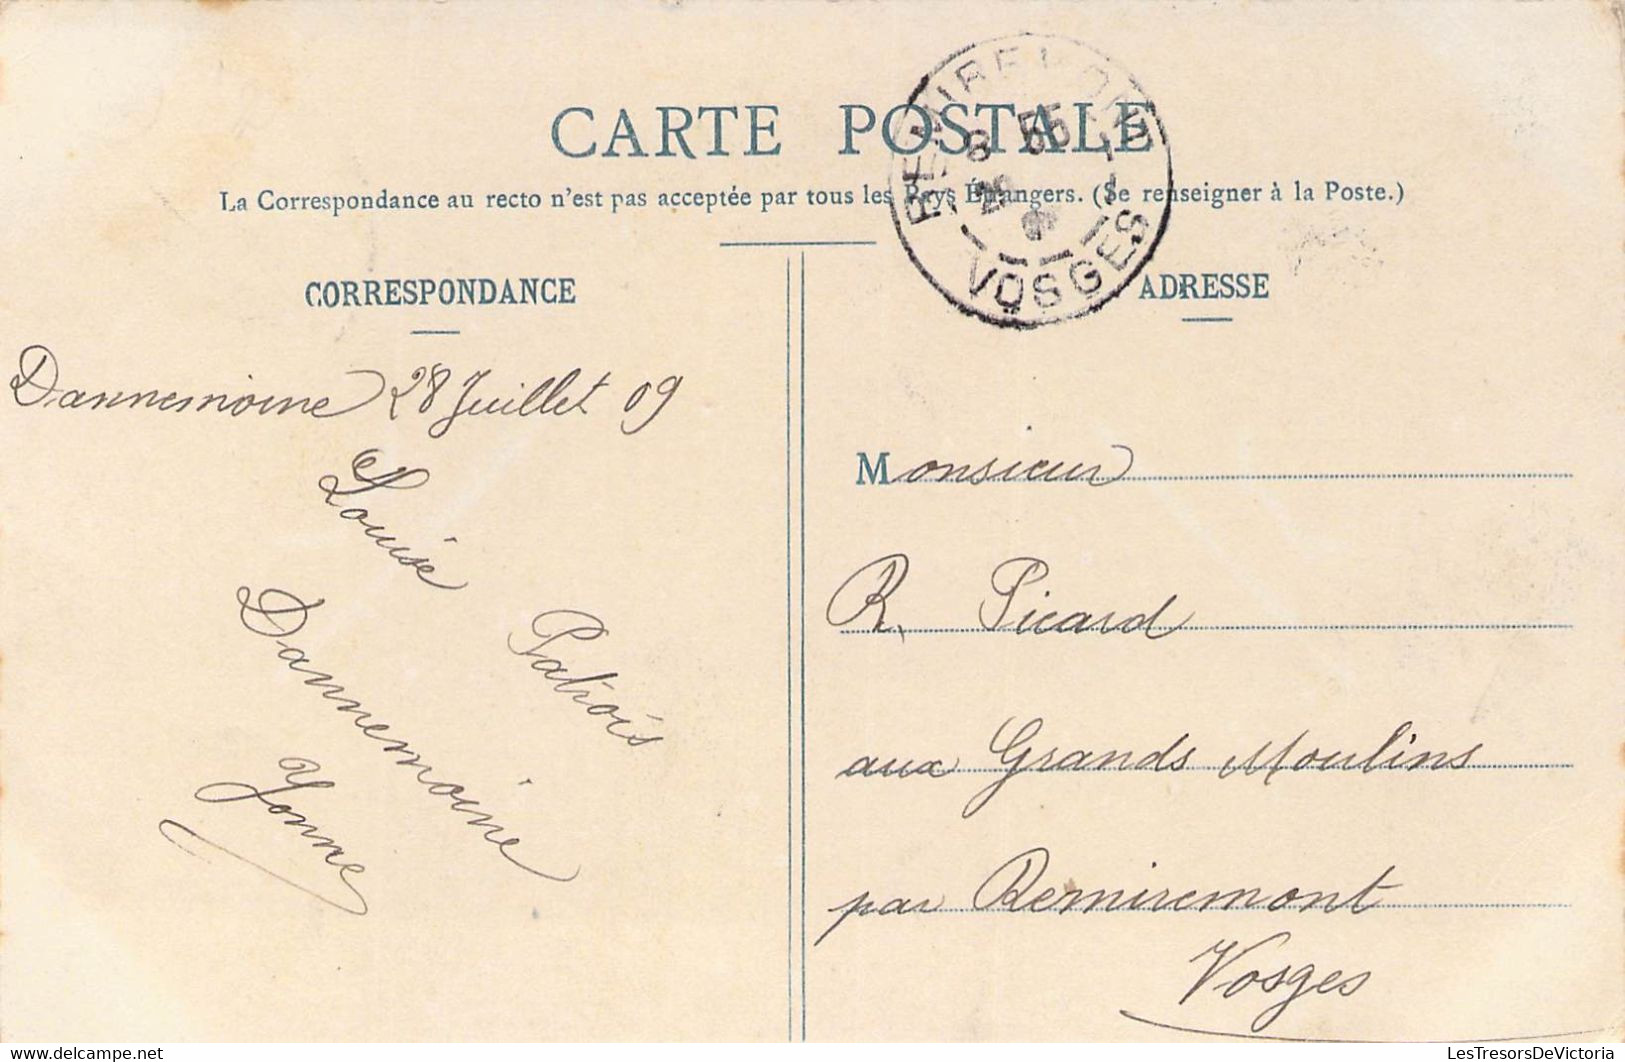 CARTE POSTALE
La Correspondance au recto n'est pas acceptée par tous les Pays Étrangers. (Se renseigner à la Poste.)
REMIREMONT
8 55
VOSGES
CORRESPONDANCE
Dannemoine 28 Juillet 09
Louise Patrois
Dannemoine
Yonne
ADRESSE
Monsieur
R. Picard
aux Grands Moulins
par Remiremont
Vosges
LesTresorsDeVictoria